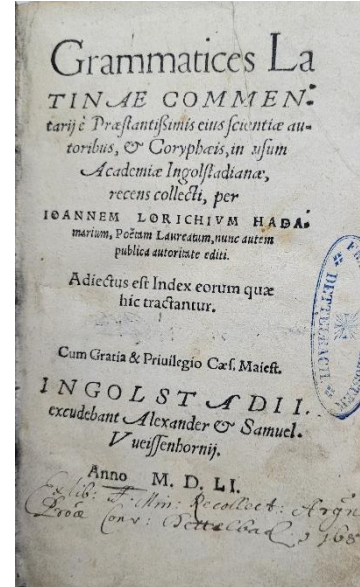 Grammatices La
TINAE COMMEN⸗
tarij è Præstantißimis eius scientiæ au-
toribus, & Coryphæis, in usum
Academiæ Ingolstadianæ,
recens collecti, per
IOANNEM LORICHIVM HADA⸗
marium, Poëtam Laureatum, nunc autem
publica autoritate editi.
Adiectus est Index eorum quæ
hic tractantur.
Cum Gratia & Priuilegio Cæs. Maiest.
INGOLSTADII.
excudebant Alexander & Samuel.
Vueissenhornij.
Anno M. D. LI.
Exlib: F. Min: Recollect:
Conv: Dettelbac
DETTELBACH